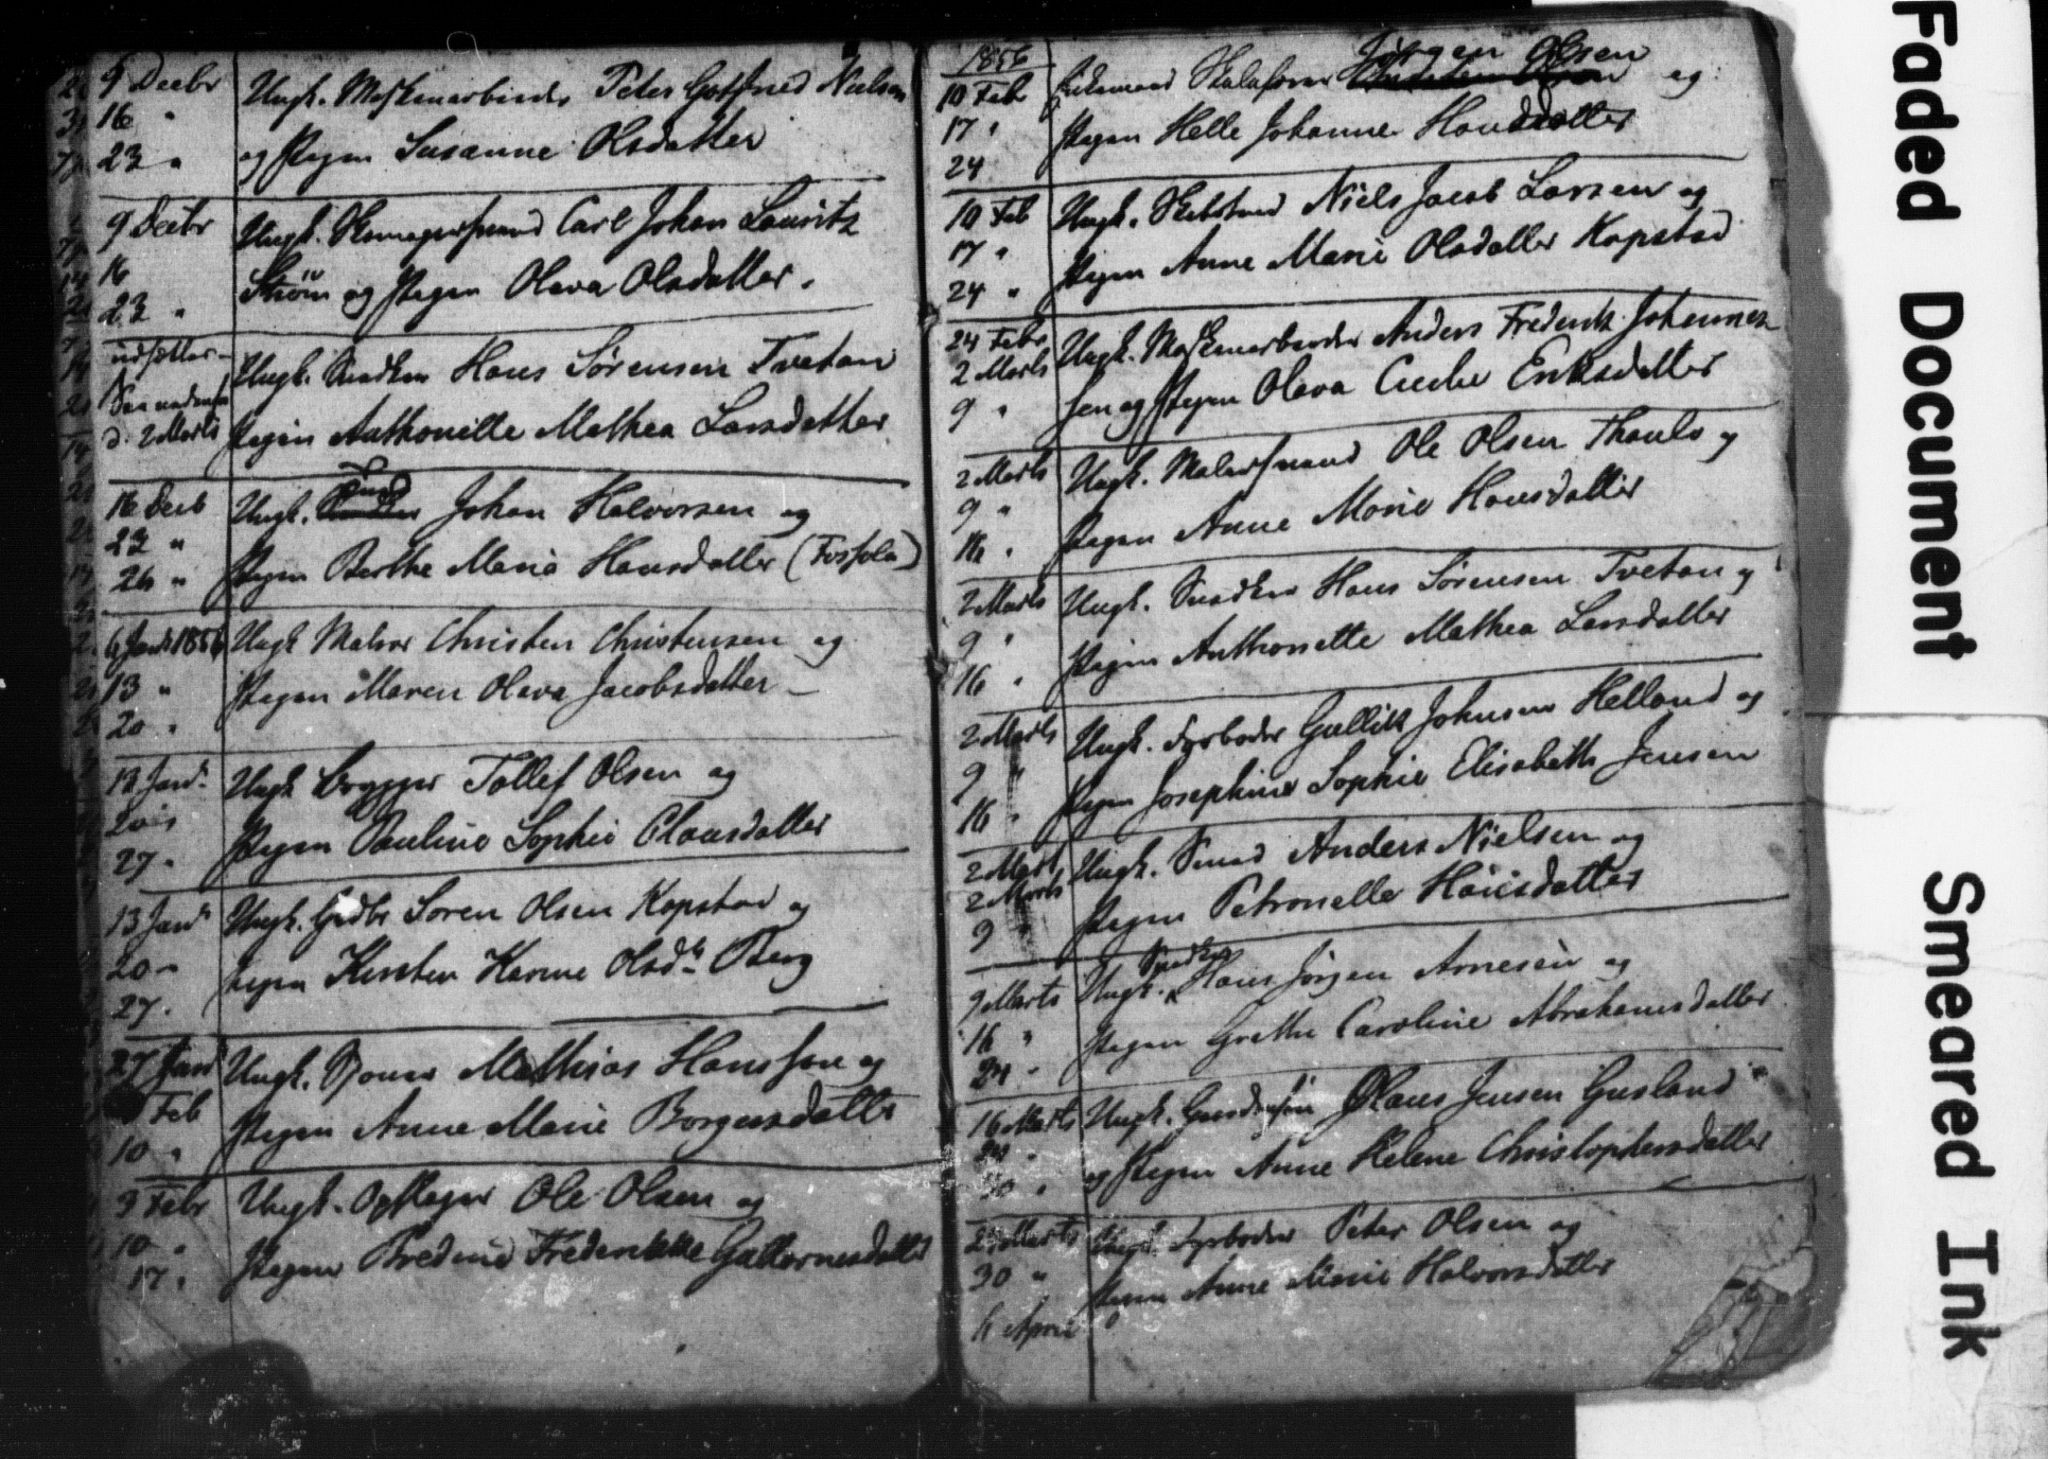 9 Decbr Ungk. Maskinarbeider Peter Gotfried Nielsen
16 "
23 " og Pigen Susanne Olsdatter
9 Decbr Ungk. Skomagersvend Carl Johan Lauritz
16
23 " Strøm og Pigen Olava Olsdatter.
udsætter Ungk. Snedker Hans Sørensen Tvetan
See nedenfor
d. 2 Marts Pigen Anthonette Mathea Larsdatter
16 Decb Ungk. Johan Halvorsen og
23 "
26 " Pigen Berthe Maria Hansdatter
6 Jan 1856 Ungk Maler Christen Christensen og
13 "
20 " Pigen Maren Olava Jacobsdatter
13 Jan Ungk Brygger Tollef Olsen og
20
27 " Pigen Pauline Sophie Clausdatter
13 Jan Ungk. Gdbr Soren Olsen Kopstad og
20 "
27 " Pigen Kirsten Karine Olsdtr Berg
27 Jan Ungk. Mathias Hanssen og
Feb
10 " Pigen Anne Marie Borgersdatter
3 Febr Ungk. Opsleger Ole Olsen og
10 "
17 " Pigen Bredine Frederikke
1856
10 Feb Enkemand Jørgen Olsen og
17 "
24 Pigen Helle Johanne Hansdatter
10 Feb Ungk. Niels Jacob Larsen og
17 "
24 " Pigen Anne Marie Olsdatter Kopstad
24 Febr Ungk. Maskinarbeider Anders Frederik Johannes
2 Marts
9 " sen og Pigen Olava Eriksdatter
2 Marts Ungk. Malersvend Ole Olsen og
9 "
16 " Pigen Anne Marie Hansdatter
2 Marts Ungk. Snedker Hans Sørensen Tvetan og
9 "
16 " Pigen Anthonette Mathea Larsdatter
2 Marts Ungk. Fyrbøder Gullik Johnsen Helland og
9 "
16 " Pigen Josephine Sophie Elisabeth Jensen
2 Mart Ungk. Smed Anders Nielsen og
2 Marts
9 " Pigen Petronelle Hansdatter
Snedker
9 Marts Ungk. Hans Jørgen Arnesen og
16 "
24 " Pigen Grethe Caroline Abrahamsdatter
16 Marts Ungk. Olaus Jensen
"
30 " og Pigen Anne Helene Christophersdatter
Marts Ungk. Fyrbøder Peter Olsen og
30 "
6 April Pigen Anne Marie Halvorsdatter
Faded Document
Smeared Ink